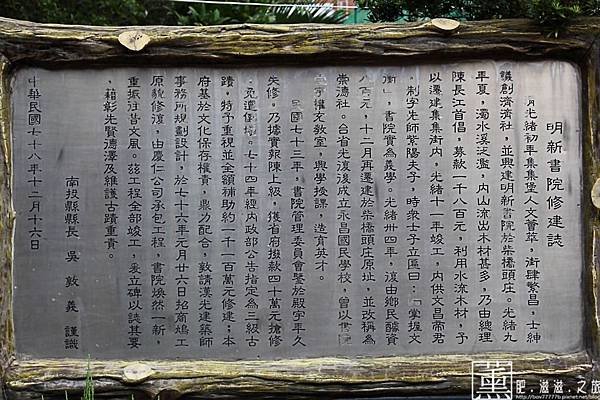 明新書院修建誌
清光緒初年集集堡人文薈萃，街肆繁昌，士紳
議創濟濟社，並興建明新書院於柴橋頭庄。光緒九
年夏，濁水溪泛濫，內山流出木材甚多，乃由總理
陳長江首倡，募款一千八百元，利用水流木材，予
以遷建集集街內，光緒十一年竣工，內供文昌帝君
、制字先師紫陽夫子，時衆士子立匾曰：「掌握文
衡」，書院實為義學。光緒卅四年，復由鄉民醵資
八百元，十二月再遷建於柴橋頭庄原址，並改稱為
崇德社。台省光復後成立永昌國民學校，曾以書院
權充教室，興學授課，造育英才。
民國七十三年，書院管理委員會鑒於殿宇年久
失修，乃據實報陳上級，獲省府撥款四十萬元搶修
，免遭倒塌。七十四年經內政部公告指定為三級古
蹟，特予重視並全額補助約一千一百萬元修建；本
府基於文化保存權責，鼎力配合，敦請漢光建築師
事務所規劃設計，於七十六年元月廿六日招商鳩工
原貌修復，由慶仁公司承包工程，書院煥然一新，
重振往昔文風。茲工程全部竣工，爰立碑以誌其要
，藉彰先賢德澤及維護古蹟重責。
南投縣縣長 吳敦義 謹識
中華民國七十八年十二月十六日
薰
肥.滋滋.之旅
http://box77777b.pixnet.net/blog